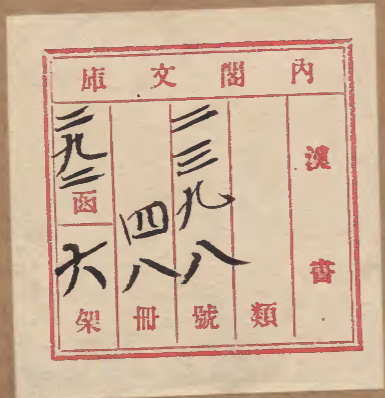 内閣文庫
漢書
類
二三九八號
四八冊
二九二函
六架